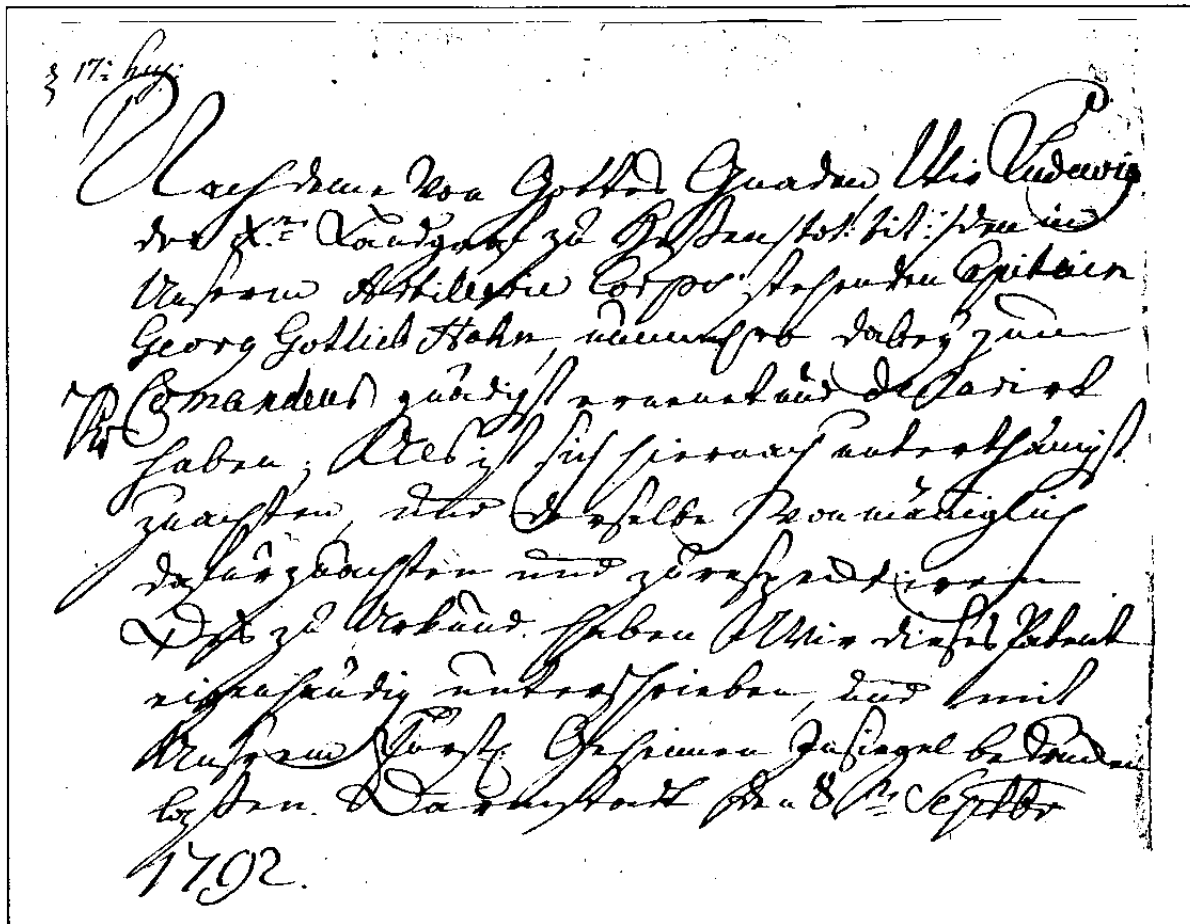 17: huj:
Nachdeme Von Gottes Gnaden Wir Ludewig
der X.te Landgraf zu Heßen tot: tit: den in
Unserm Artillerie Corps stehenden Capitain
Georg Gottlieb Hahn, nunmehro dabey zum
Commandeur gnädigst ernent und declarirt
haben; Als ist sich hiernach unterthänigst
zu achten, und derselbe von männiglich
dafür zu achten und zu respectiren
Deß zu Urkund haben Wir dieses Patent
eigenhändig unterschrieben, und mit
Unserm Fürstl. Geheimen Insiegel bedrucken
laßen. Darmstadt den 8ten Septbr
1792.